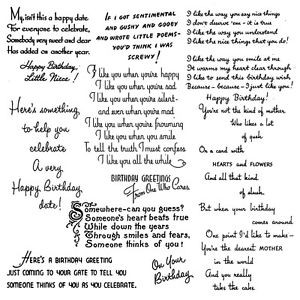 My, isn't this a happy date
For everyone to celebrate,
Somebody very dear and dear
Has added on another year.
Happy Birthday,
Little Niece!
IF I GOT SENTIMENTAL
AND GUSHY AND GOOEY
AND WROTE LITTLE POEMS-
YOU'D THINK I WAS
SCREWY!
I like the way you say nice things
I don't deserve 'em - it is true
I like the way you understand
I like the nice things that you do!
I like the way you smile at me
It warms my heart clear through
I like to send this birthday wish
Because - because - I just like you!
I like you when you're happy
I like you when you're sad
I like you when you're silent-
and even when you're mad
I like you when you're frowning
I like you when you smile
To tell the truth I must confess
I like you all the while
Here's something
to help you
celebrate
A
very
Happy Birthday
date!
Happy Birthday!
You're not the kind of mother
Who likes a lot
of gush
On a card with
HEARTS and FLOWERS
And all that kind
of slush.
But when your birthday
comes around
One point I'd like to make-
You're the dearest MOTHER
in the world
And you really
take the cake
BIRTHDAY GREETINGS
From One Who Cares
Somewhere-can you guess?
Someone's heart beats true
While down the years
Through smiles and tears,
Someone thinks of you!
HERE'S A BIRTHDAY GREETING
JUST COMING TO YOUR GATE TO TELL YOU
SOMEONE THINKS OF YOU AS YOU CELEBRATE.
On Your
Birthday